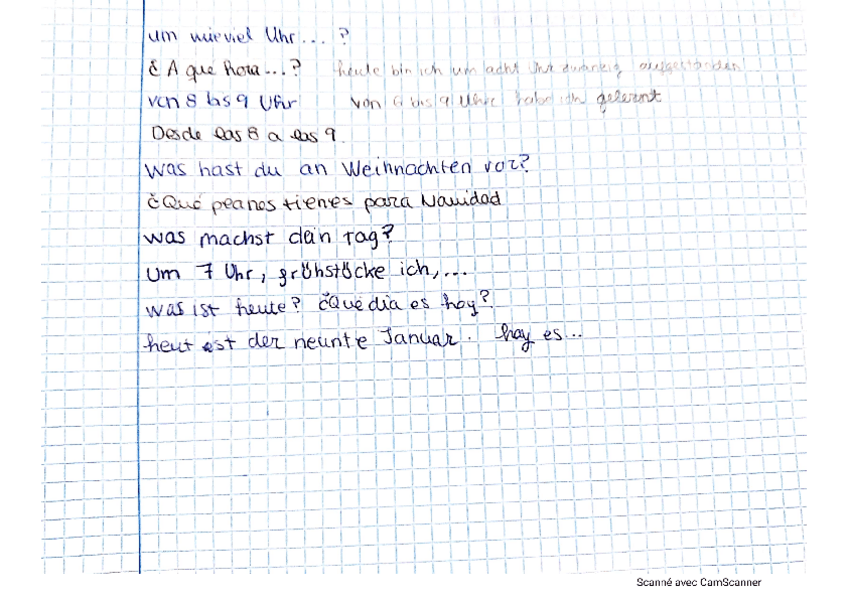 um wieviel Uhr... ?
¿ A que hora...? heute bin ich um acht Uhr zwanzig aufgestanden
von 8 bis 9 Uhr von 8 bis 9 Uhr habe ich gelernt
Desde las 8 a las 9
was hast du an Weihnachten vor?
¿Qué peanes tienes para Navidad
was machst dein Tag?
um 7 Uhr, frühstücke ich,...
was ist heute? ¿Qué dia es hoy?
heut ist der neunte Januar. hoy es..
Scanné avec CamScanner